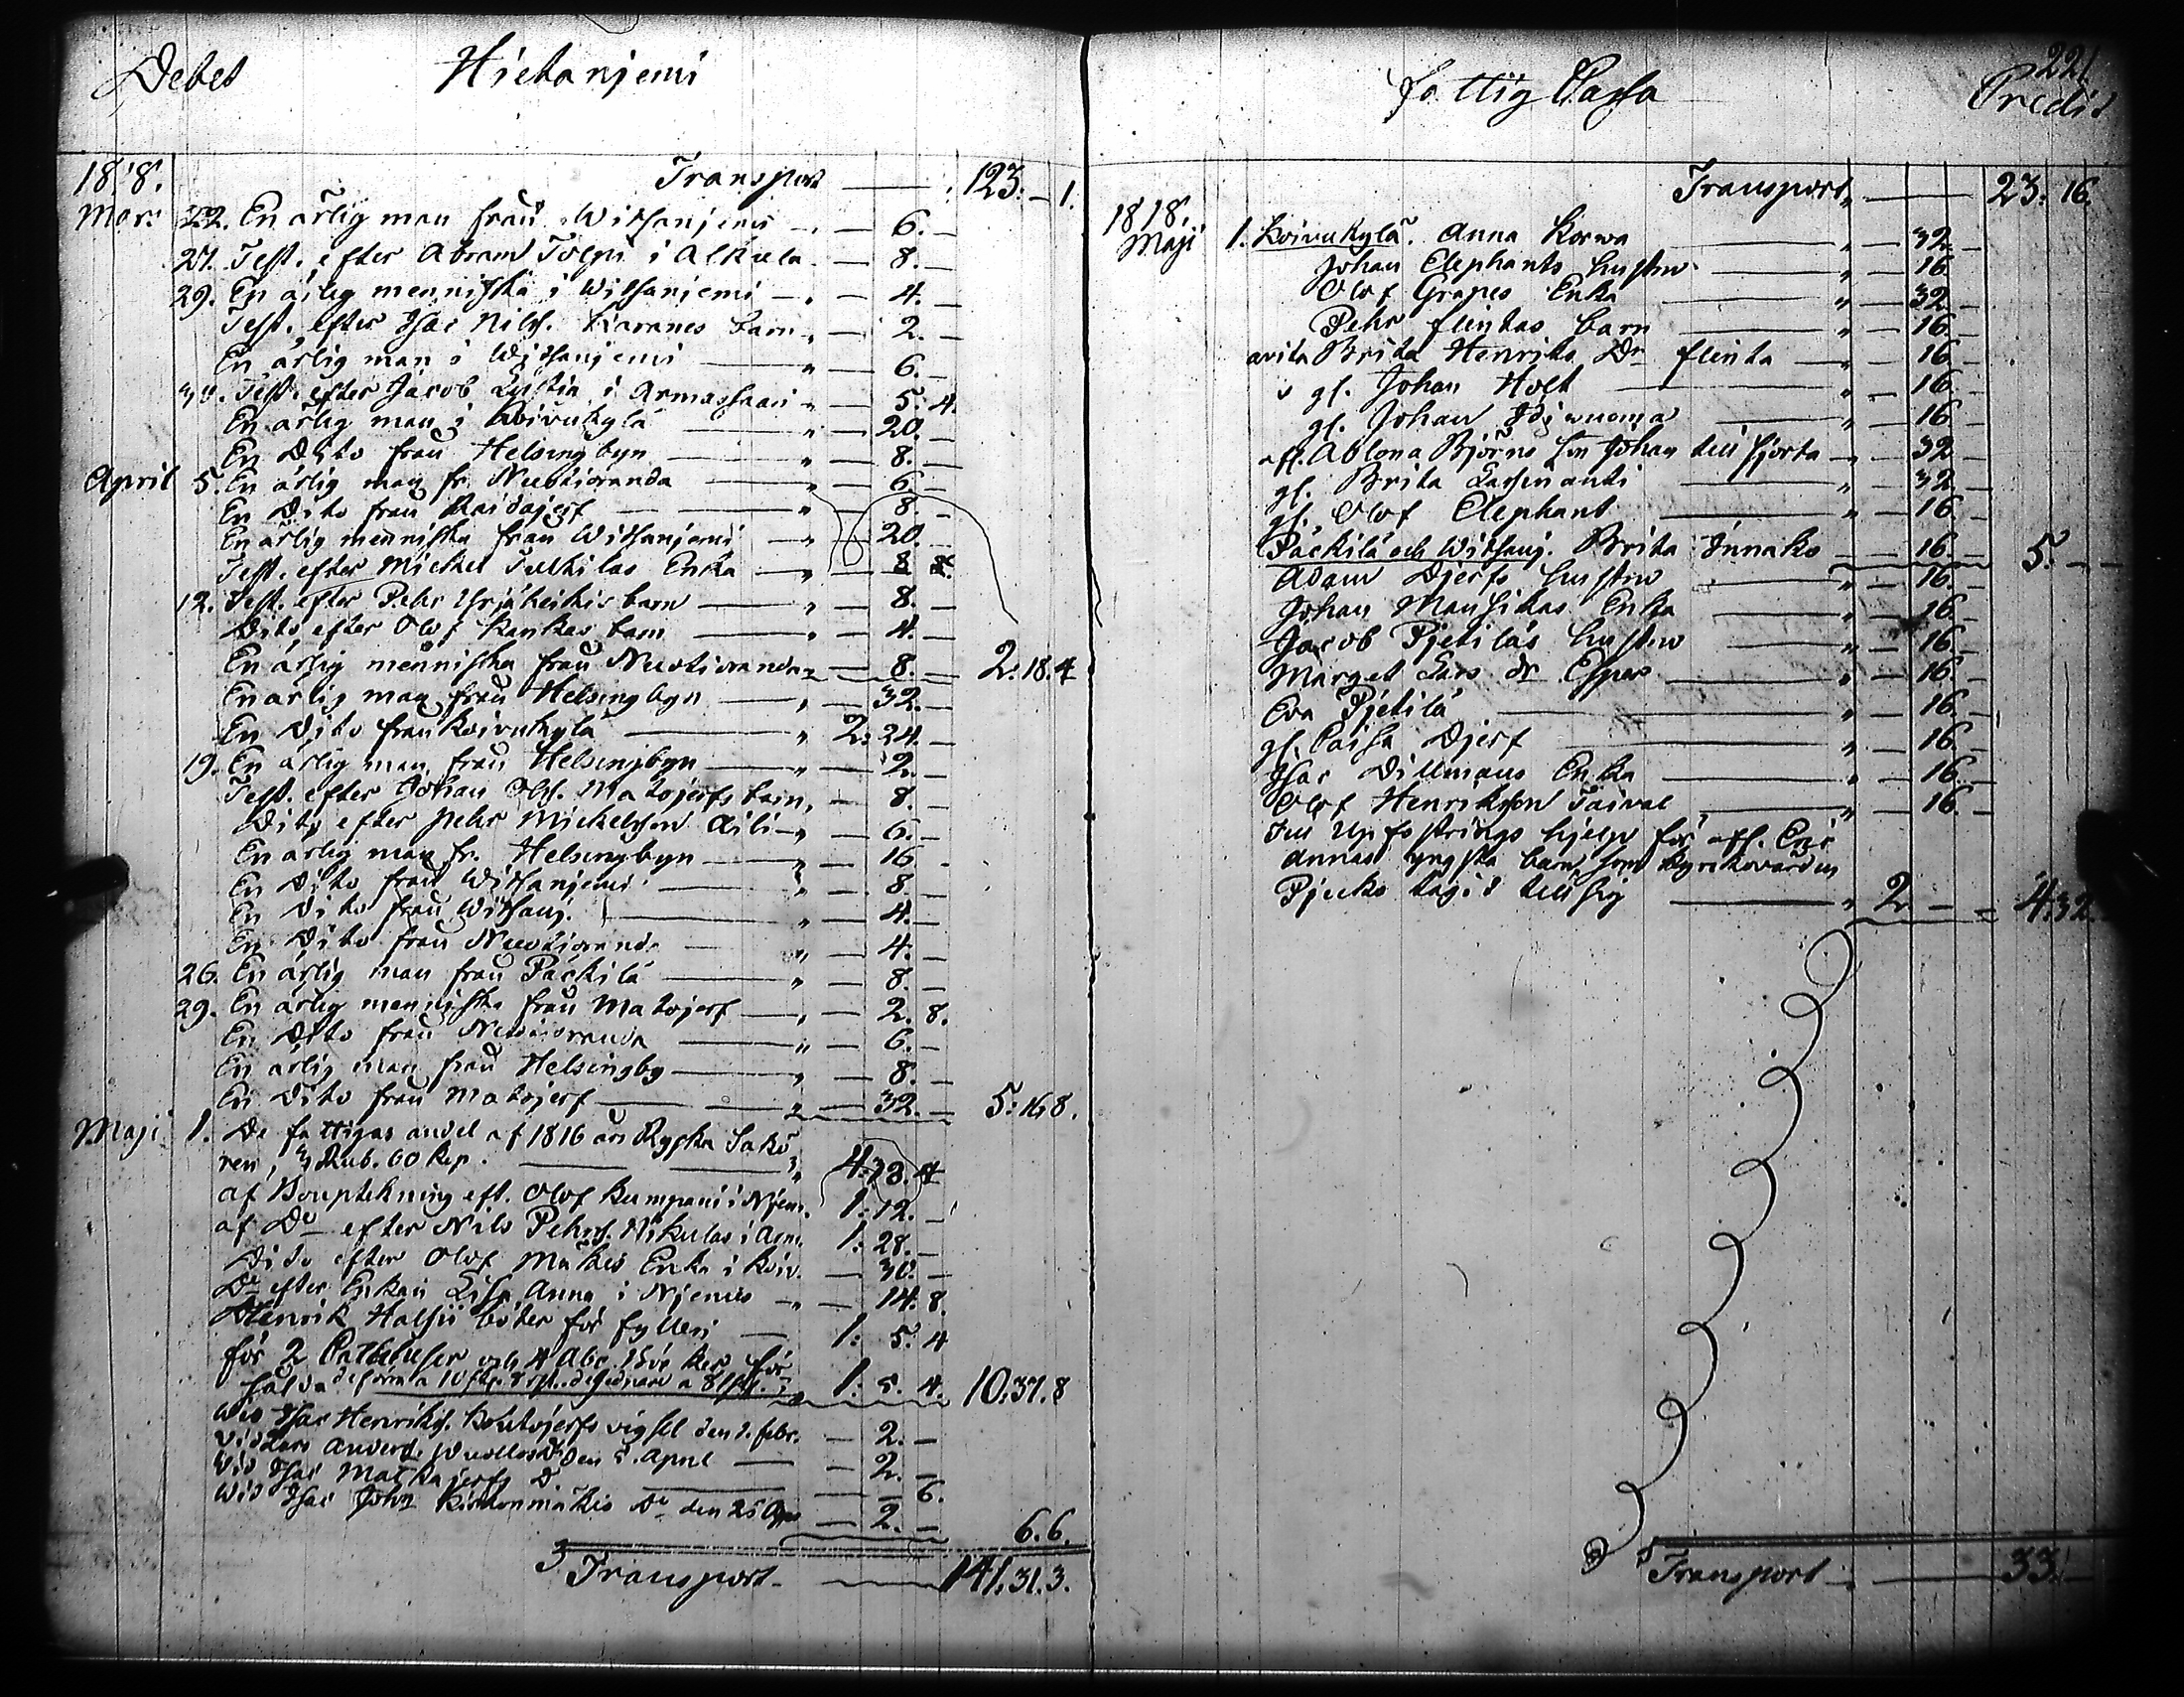 Debet Hietanjemi
1818. Transport 123. 1.
Mars 22. En ärlig man från Witsanjemi 6.
27. Test. efter Abram Tolpi i Alkula 8.
29. En ärlig menniska i Witsanjemi 4.
Test. efter Isac Nilss. barn 2.
En ärlig man i Witsanjemi 6.
30. Test. efter Jacob i Armassaari 5. 4.
En ärlig man i Koivukylä 20.
En Dito från Helsingbyn 8.
April 5. En ärlig man fr. Nuotioranda 6.
En Dito från Raidajerf 8.
En ärlig menniska från Witsanjemi 20.
Test. efter Mickel Enka 8 8.
12. Test. efter Pehr barn 8.
Dito efter Olof Kankas barn 4.
En ärlig menniska från Nuotioranda 8. 2. 18. 4
En ärlig man från Helsingbyn 32.
En Dito från Koivukylä 2. 24.
19. En ärlig man från Helsingbyn 2.
Test. efter Johan Olss. Matojerfs barn 8.
Dito efter Pehr Mickelsson Aili 6.
En ärlig man fr. Helsingbyn 16
En Dito från Witsanjemi 8.
En Dito från Witsanj. 4.
En Dito från Nuotiorand. 4.
26. En ärlig man från Päckilä 8.
29. En ärlig menniska från Matojerf 2. 8.
En Dito från Nuotioranda 6.
En ärlig man från Helsingby 8.
En Dito från Matojerf 32. 5: 16. 8.
Maji 1. De fattigas andel af 1816 års Ryska Sakö
ren, 3 Rub. 60 Kop. 4: 4
af Bouptekning eft. Olof Kumpani i Njem. 1: 12.
af Do efter Nils Pehrs. Nikulas i Arm. 1: 28.
Dito efter Olof Mäkis Enka i Koiv. 30.
Do efter Enkan Lisa Anna i Njemis 14. 8.
Henrik böter för fylleri 1: 5. 4
för 2 och 4 Abc böcker för
sålda 1: 5. 4. 10: 37. 8
Wid Isac Henrikss. vigsel den febr. 2.
Vid Lars Anders. den 5. April 2.
Wid Isac Matkajerfs Do 6.
Wid Isac Johs Do den 25 2. 6. 6.
Transport 141. 31. 3.
fattig Cassa 221. Credit
Transport 23. 16.
1818.
Maji 1. Koivukylä. Anna Korwa 32
Johan Elephants hustru 16
Olof Grapes Enka 32
Pehr flinkas barn 16.
Brita Henriks Dr flinka 16
gl. Johan Holt 16.
gl. Johan 16
Ablona Björns son Johan till skjorta 32
gl. Brita Lassinanti 32
gl. Olof Elephant 16.
Päckilä och Witsanj. Brita Innako 16. 5.
Adam Djerfs hustru 16.
Johan Mansikas Enka 16
Jacob Pjetiläs hustru 16.
Marget Lars dr Espas 16.
Eva Pjetilä 16.
gl. Caisa Djerf 16.
Isac Dillmans Enka 16.
Olof Henriksson Taival 16.
Till Upfostrings hjelp för afl. Eric
Annas yngsta barn som Kyrkovärden
Pjucko tagit till sig 2. 4. 32
Transport 33.